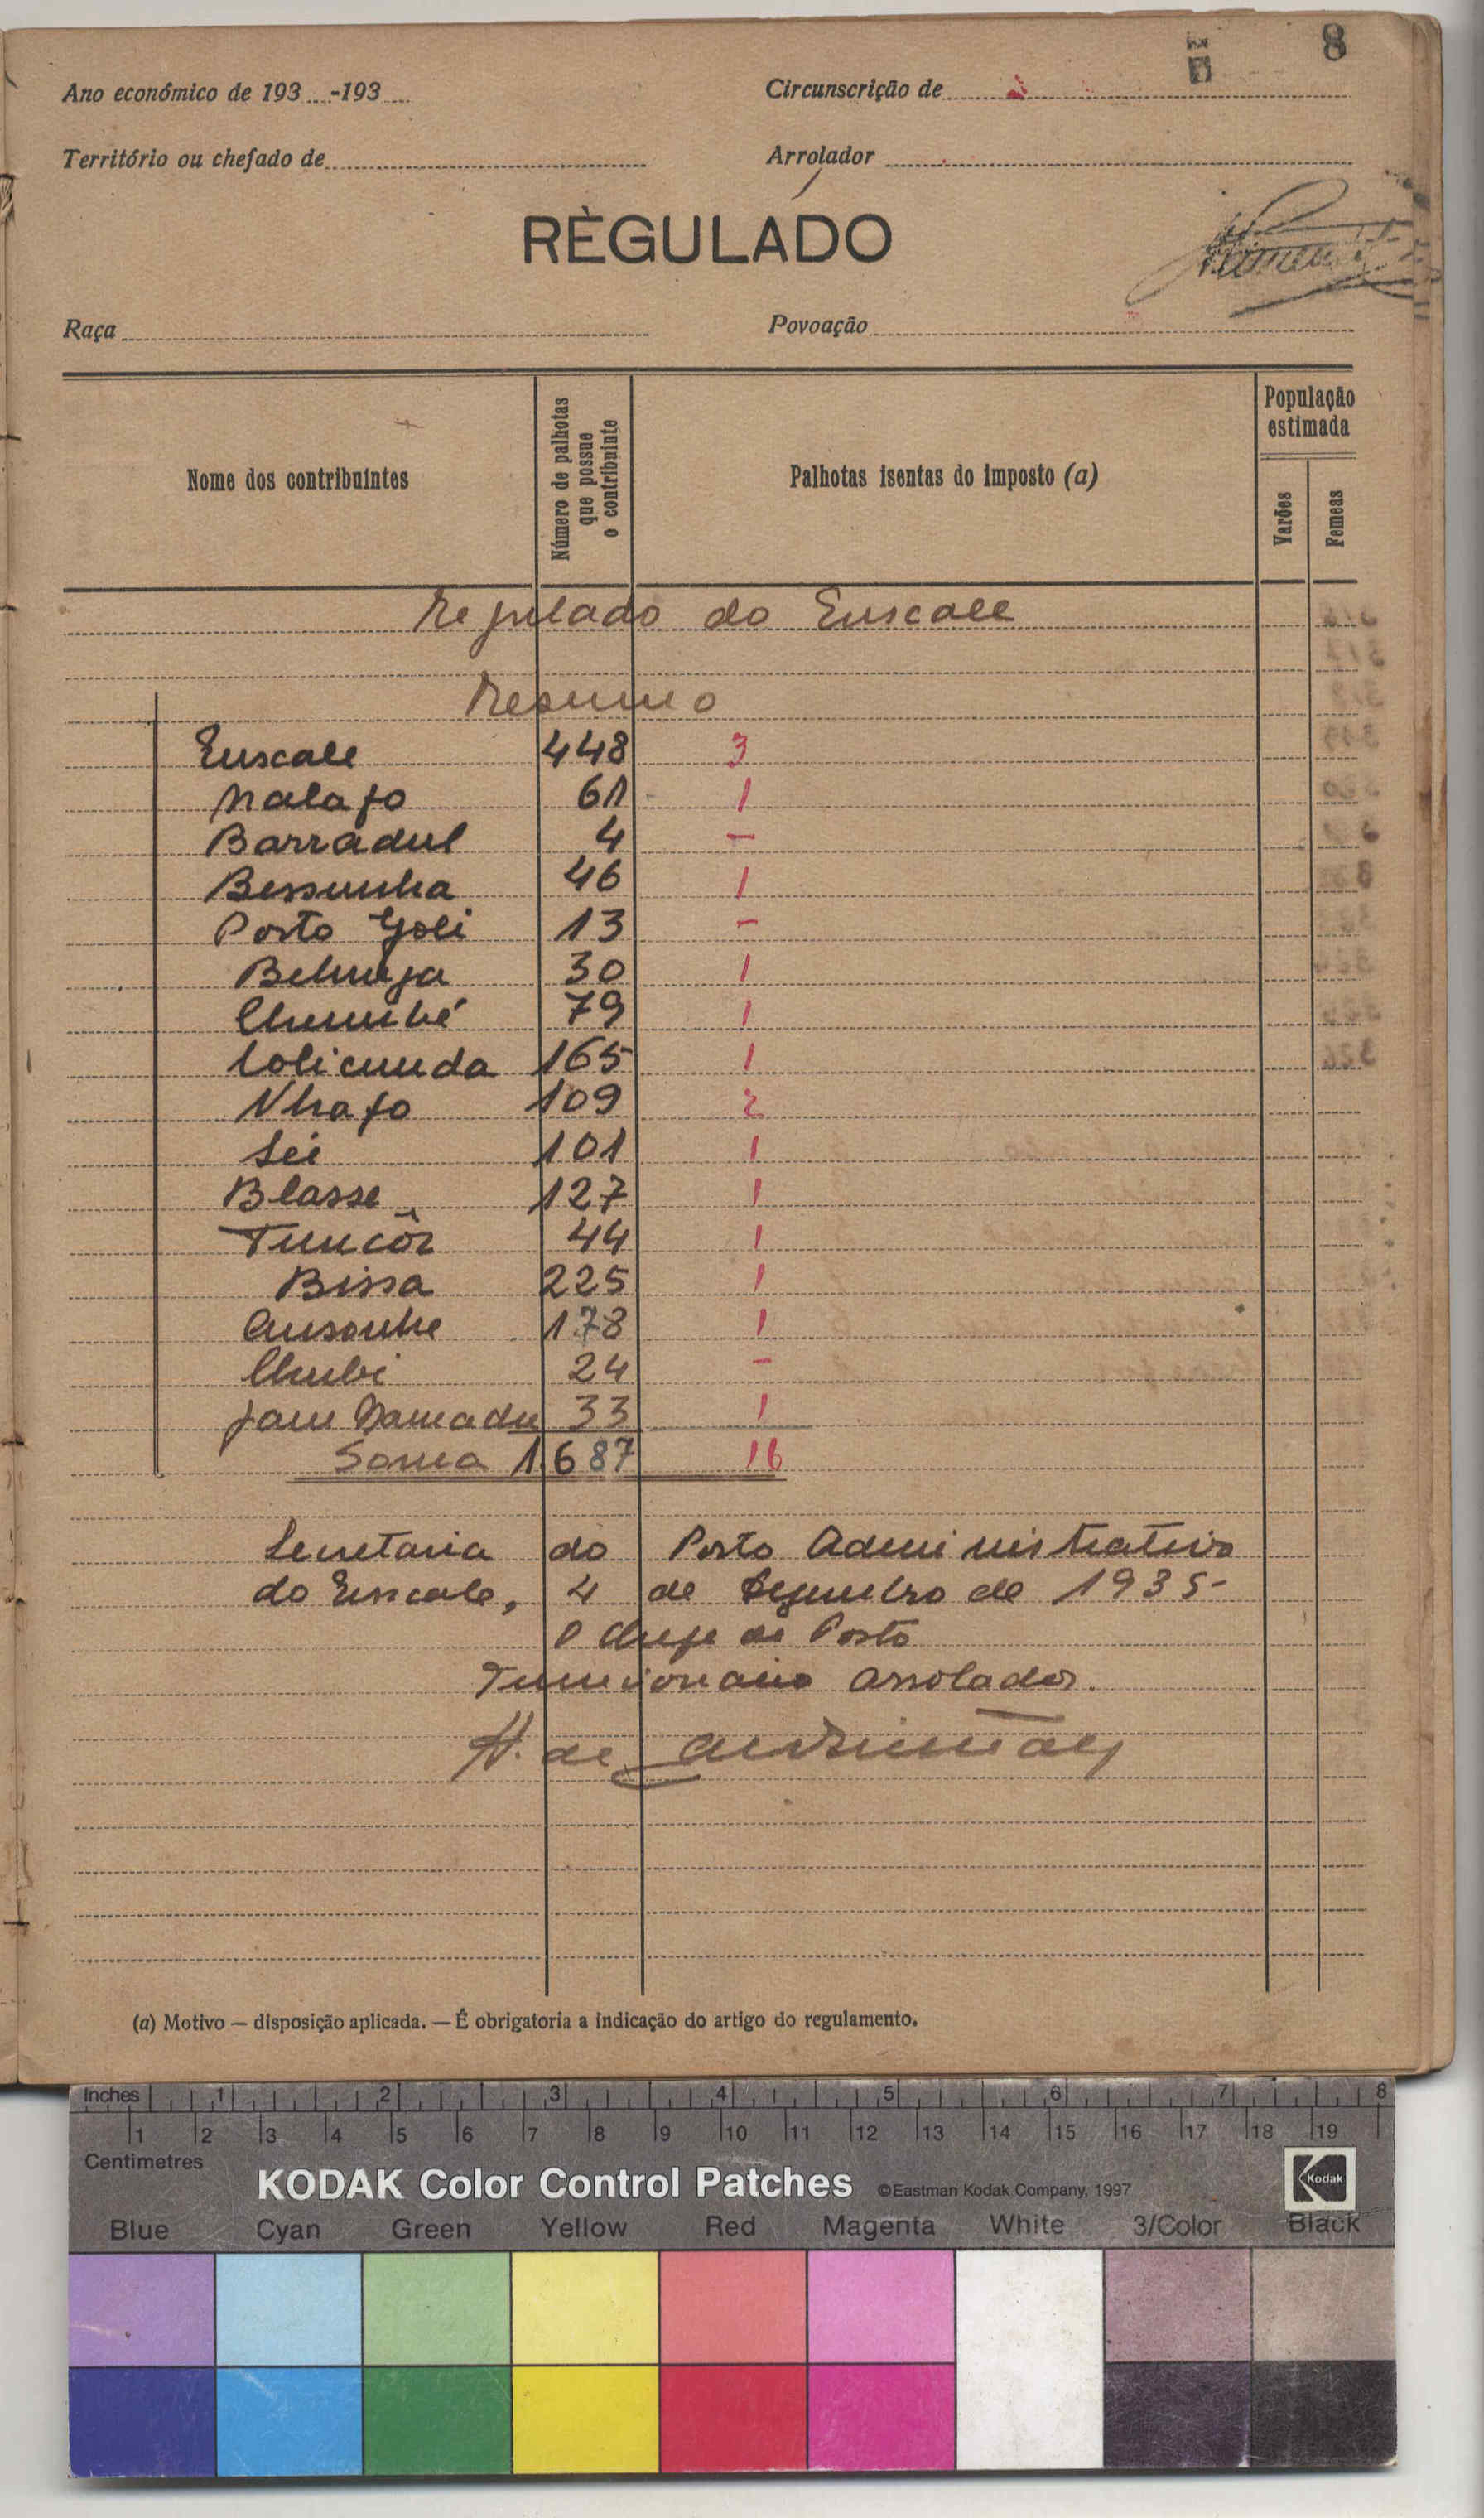 8
Ano económico de 193 -193
Circunscrição de
Território ou chefado de
Arrolador
REGULADO
Raça
Povoação
Nome dos contribuintes
Número de palhotas que possue o contribuinte
Palhotas isentas do imposto (a)
População estimada
Varões
Femeas
Regulado do Enscale
Resumo
Enscale 448 3
Malafo 61 1
Barradul 4 —
Bessunha 46 1
Porto Goli 13 —
30 1
Chumbé 79 1
Colicunda 165 1
Nhafo 109 2
Sei 101 1
Blasse 127 1
Tuncôr 44 1
Bissa 225 1
Ansonhe 178 1
Chubi 24 —
Jam Mamadu 33 1
Soma 1.687 16
Secretaria do Posto Administrativo
do Enscale, 4 de de 1935-
O Chefe de Posto
Funcionario arrolador.
(a) Motivo — disposição aplicada. — É obrigatoria a indicação do artigo do regulamento.
Inches 1 2 3 4 5 6 7 8
1 2 3 4 5 6 7 8 9 10 11 12 13 14 15 16 17 18 19
Centimetres
KODAK Color Control Patches ©Eastman Kodak Company, 1997 Kodak
Blue Cyan Green Yellow Red Magenta White 3/Color Black